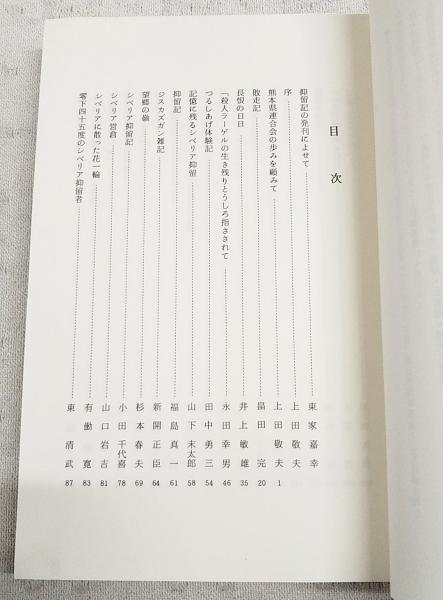 目次
抑留記の発刊によせて……東家嘉幸
序……上田敬夫
熊本県連合会の歩みを顧みて……上田敬夫 1
敗走記……畠田完 20
長恨の日日……井上敏雄 35
「殺人ラーゲルの生き残りとうしろ指さされて……永田幸男 46
つるしあげ体験記……田中勇三 54
記憶に残るシベリア抑留……山下末太郎 58
抑留記……福島真一 61
ジスカズガン雑記……新開正臣 64
望郷の倫……杉本春夫 69
シベリア抑留記……小田千代喜 78
シベリア営倉……山口岩吉 81
シベリアに散った花一輪……有働寛 83
零下四十五度のシベリア抑留者……東清武 87